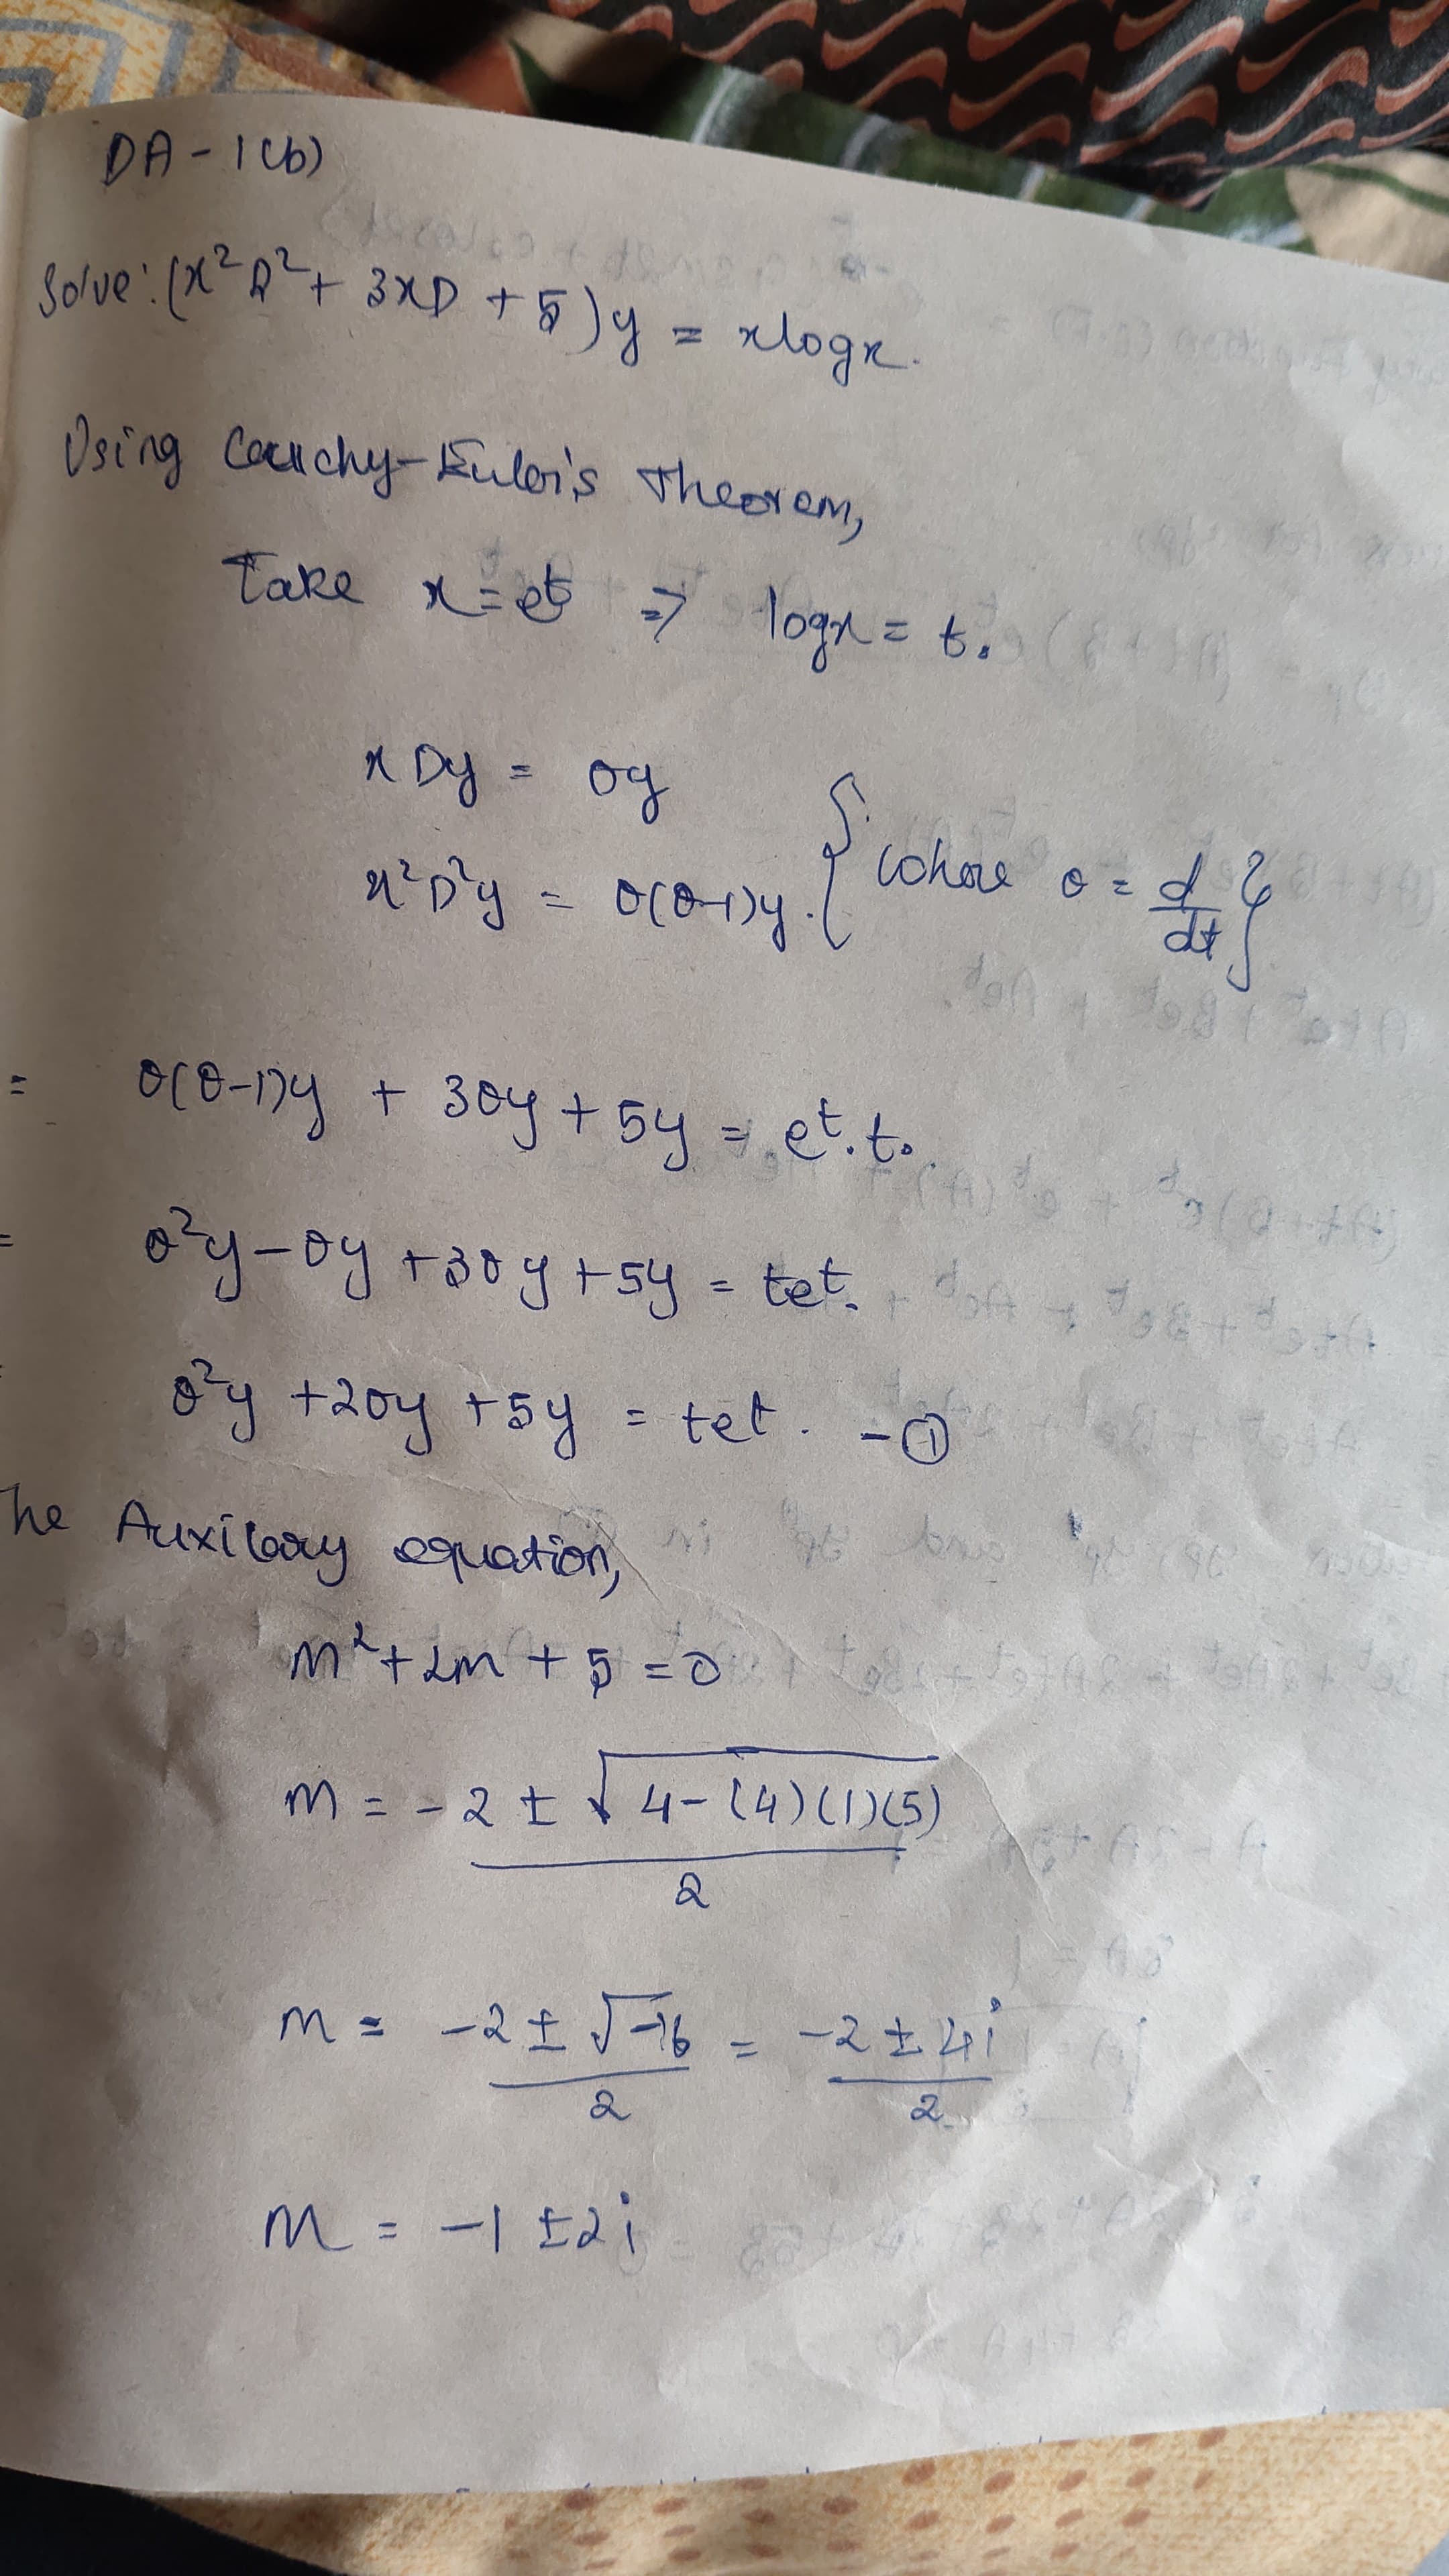 DA - 1(b)
Solve: (x²D² + 3xD + 5)y = xlogx.
Using Cauchy-Euler's Theorem,
Take x = e^t => logx = t.
xDy = θy
x²D²y = θ(θ-1)y. {where θ = d/dt}
= θ(θ-1)y + 3θy + 5y = e^t.t.
= θ²y - θy + 3θy + 5y = te^t.
θ²y + 2θy + 5y = te^t. - ①
The Auxilary equation,
m² + 2m + 5 = 0
m = -2 ± √4-(4)(1)(5) / 2
m = -2 ± √-16 / 2 = -2 ± 4i / 2
m = -1 ± 2i